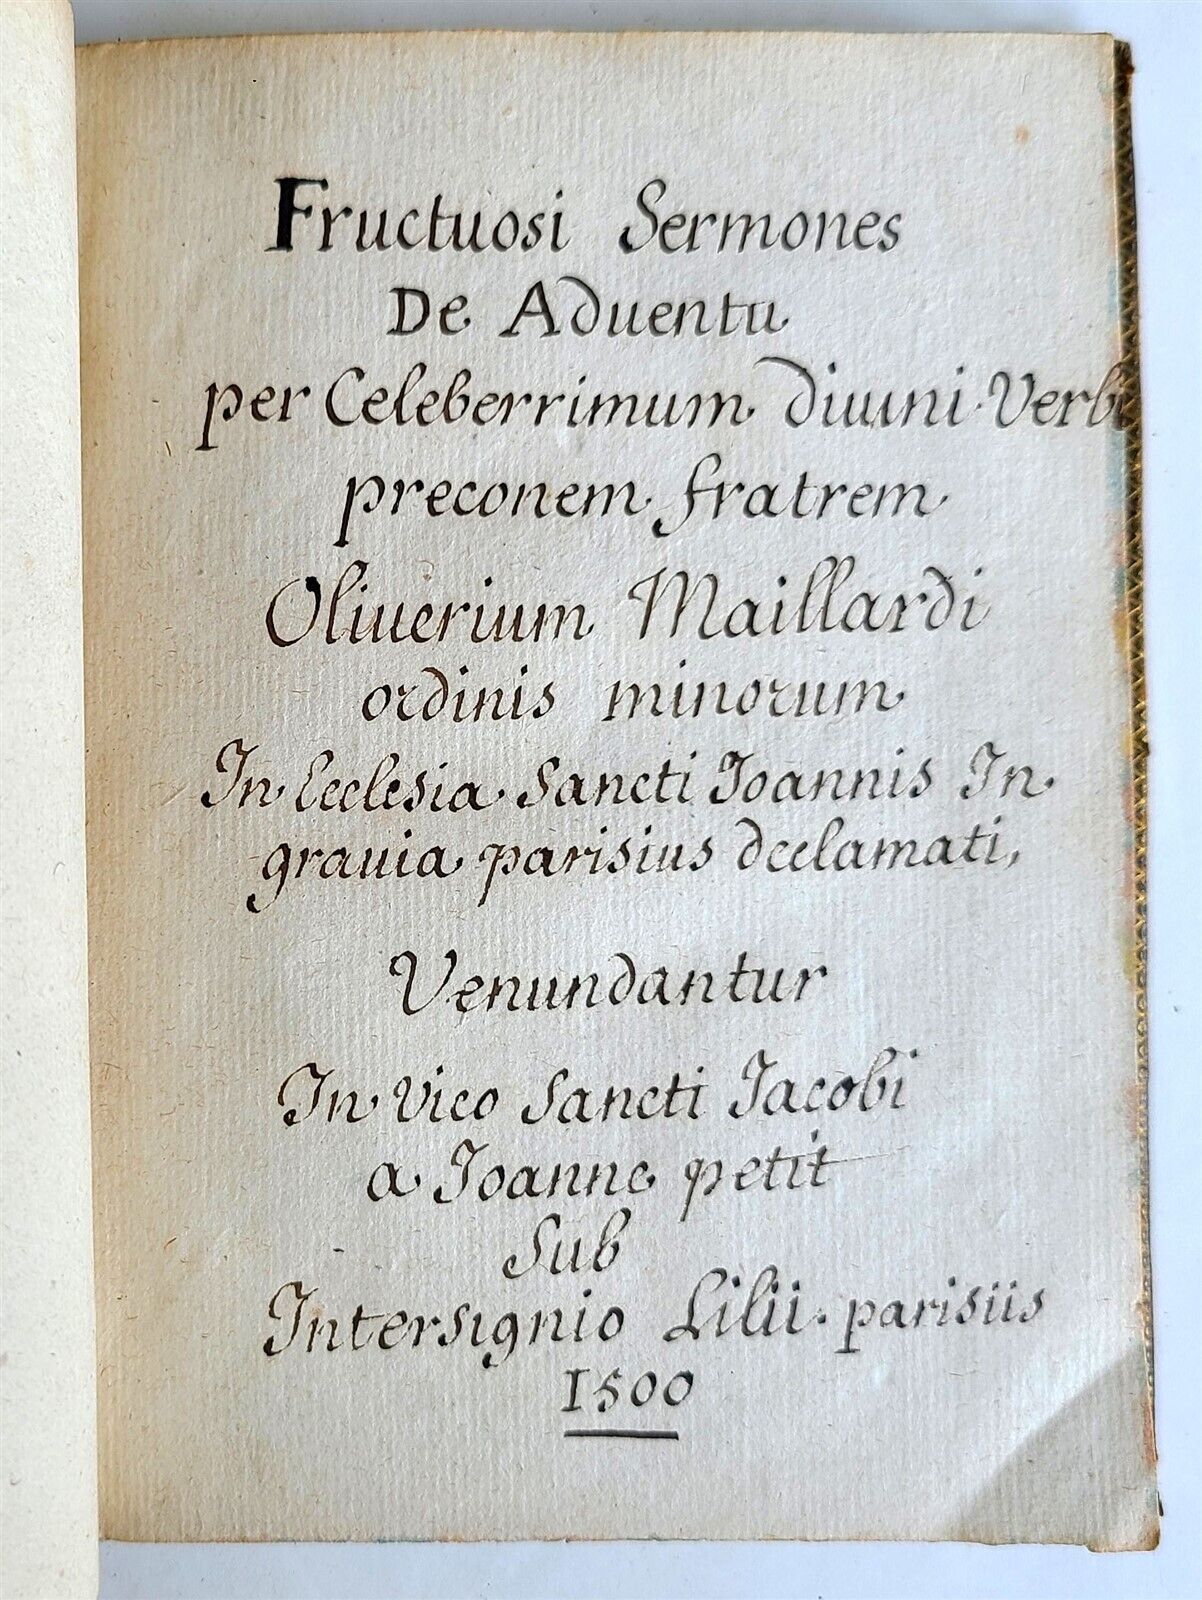 Fructuosi Sermones
De Aduentu
per Celeberrimum diuini Verbi
preconem fratrem
Oliuerium Maillardi
ordinis minorum
In Ecclesia Sancti Joannis In
grauia parisius declamati,
Venundantur
In Vico Sancti Jacobi
a Joanne petit
Sub
Intersignio Lilii. parisiis
1500